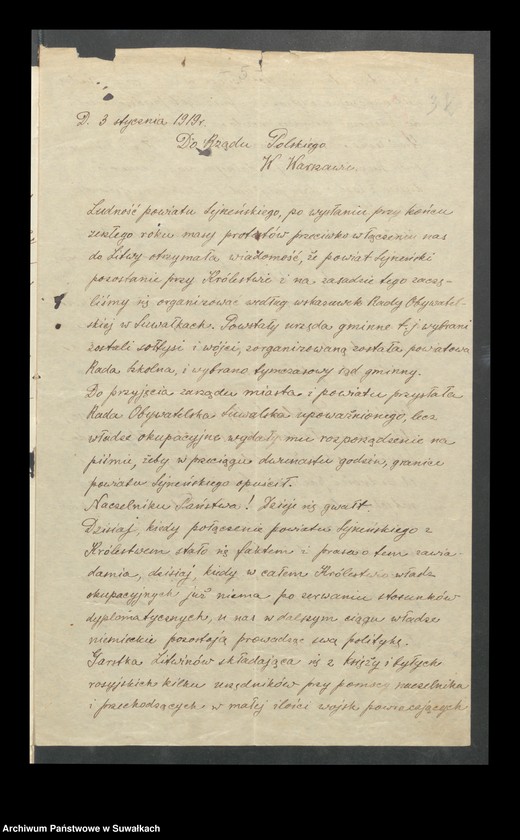 - 5 -
D. 3 stycznia 1919 r.
Do Rządu Polskiego
W Warszawie.
Ludność powiatu Sejneńskiego, po wysłaniu przy końcu
zeszłego roku masy protestów przeciwko włączeniu nas
do Litwy otrzymała wiadomość, że powiat Sejneński
pozostanie przy Królestwie i na zasadzie tego zaczę-
liśmy się organizować według wskazówek Rady Obywatel-
skiej w Suwałkach. Powstały urzęda gminne t. j. wybrani
zostali sołtysi i wójci, zorganizowaną została powiatowa
Rada Szkolna, i wybrano tymczasowy sąd gminny.
Do przyjęcia zarządu miasta i powiatu przysłała
Rada Obywatelska Suwalska upoważnionego, lecz
władze okupacyjne wydały mu rozporządzenie na
piśmie, żeby w przeciągu dwunastu godzin, granice
powiatu Sejneńskiego opuścił.
Naczelniku Państwa! Dzieje się gwałt.
Dzisiaj, kiedy połączenie powiatu Sejneńskiego z
Królestwem stało się faktem i prasa o tem zawia-
damia, dzisiaj, kiedy w całem Królestwie władz
okupacyjnych już niema po zerwaniu stosunków
dyplomatycznych, u nas w dalszym ciągu władze
niemieckie pozostają prowadząc swą politykę.
Garstka Litwinów składająca się z księży i byłych
rosyjskich kilku urzędników przy pomocy naczelnika
i przechodzących w małej ilości wojsk powracających
Archiwum Państwowe w Suwałkach